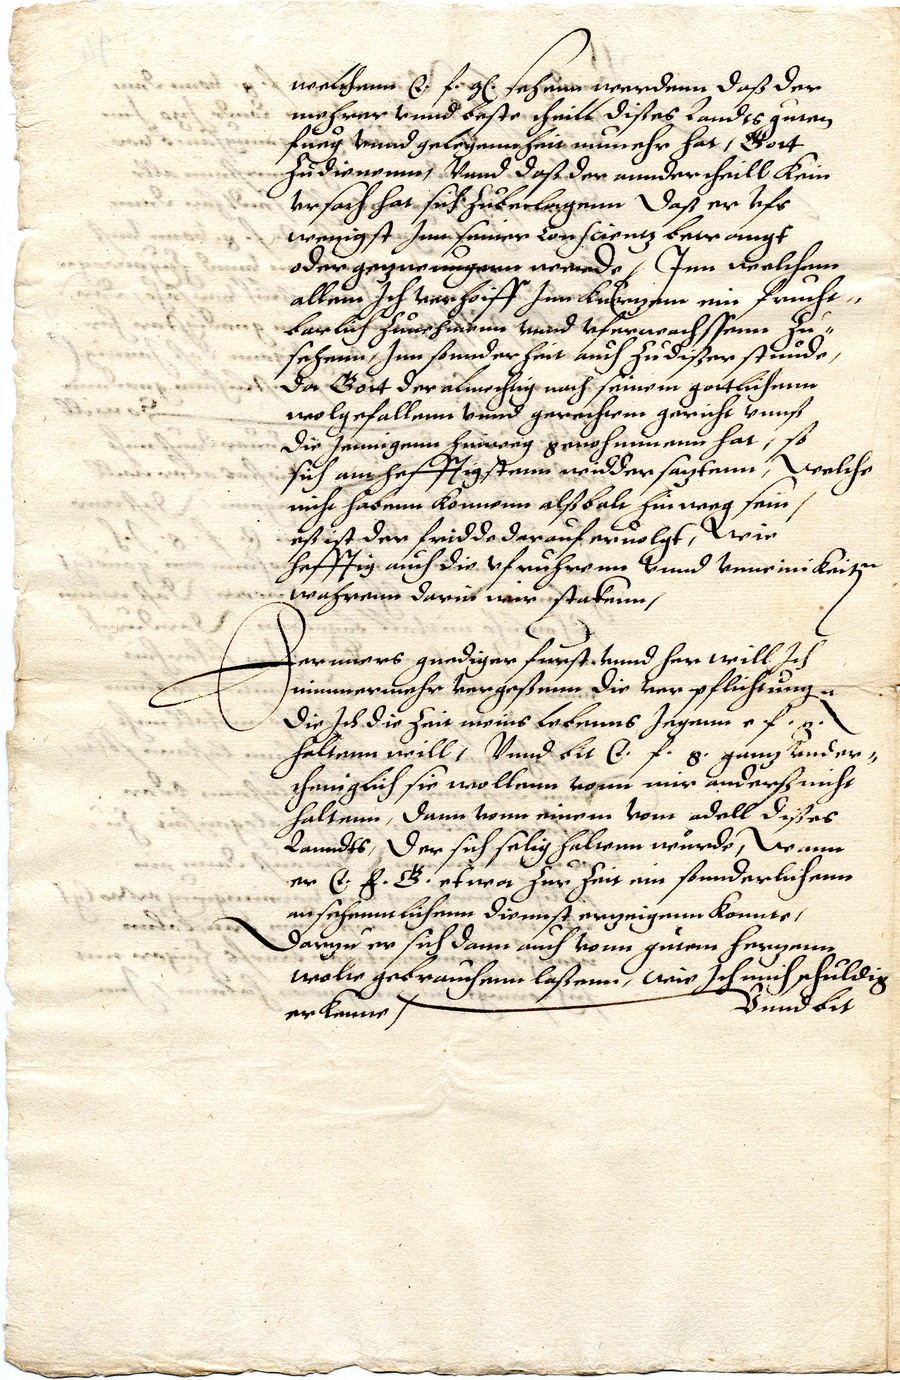 welchem E. f. gl. sehenn werdenn daß der
mehrer vnnd beste theill dißes Landts guten
fueg vnnd gelegennheit nunmehr hat, Gott
Zudienenn, Vnnd daß der annder theill kein
vrsach hat sich Zubeclagenn Daß er vfs
wenigst Inn seiner Conscientz betrangt
oder gezwungenn werde, Inn welchem
allem Ich verhoiff Inn kurtzem ein frucht„
barlich Zunehmenn vnnd vferwachssenn Zu„
sehenn, Inn sonnderheit auch Zu dißer stunde,
da Gott der almechtig nach seinem gottlichenn
wolgefallenn vnnd gerechtem gericht vnnß
die Jennigenn hinweg genohmmenn hat, so
sich am hefftigstenn widdersaztenn, Welche
nicht habenn konnenn alßbalt hinweg sein,
eß ist der fridde darauf eruolgt, Wie
hefftig auch die vfruhrenn vnnd vneinikeiten
wahrenn darin wir stakenn,
Fernners gnediger furst vnnd her will Ich
nimmermehr vergeßenn die verpflichtung
die Ich die Zeit meins lebenns Jegenn e. f. g.
haltenn will, Vnnd bit E. f. g. gantz vnder„
theniglich sie wollenn vonn mir anderß nicht
haltenn, dann vonn einem vom adell dißes
Lanndts, Der sich selig haltenn würde, Wann
er E. F. G. etwa Zur Zeit ein sonnderlichenn
ansehenntlichenn diennst erzeigenn konnte,
Dartzu er sich dann auch vonn gutem hertzenn
wolte gebrauchenn laßenn, wie Ich mich schuldig
erkenne, Vnnd bit